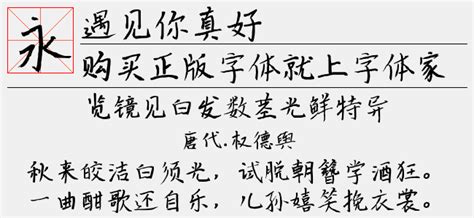 永
遇见你真好
购买正版字体就上字体家
览镜见白发数茎光鲜特异
唐代.权德舆
秋来皎洁白须光，试脱朝簪学酒狂。
一曲酣歌还自乐，儿孙嬉笑挽衣裳。